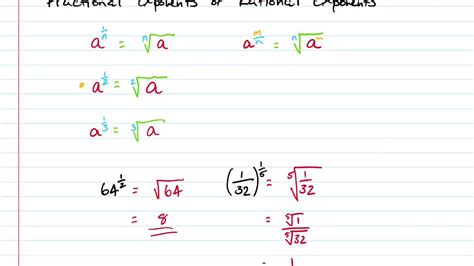 Fractional Exponents or Rational Exponents
a^(1/n) = ⁿ√a    a^(m/n) = ⁿ√(a^m)
a^(1/2) = ²√a
a^(1/3) = ³√a
64^(1/2) = √64    (1/32)^(1/5) = ⁵√(1/32)
= 8    = ⁵√1/⁵√32
= 1